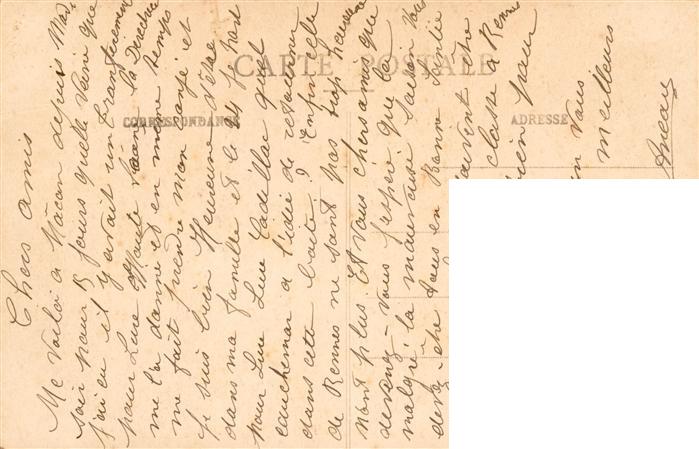 CARTE POSTALE
CORRESPONDANCE
ADRESSE
Chers amis
Me voilà à Mâcon depuis
soir pour 15 jours quelle Veine que
j'ai eu il y avait un transfèrement
pour Lure Haute la Direction
me l'a donné et en même temps
me fait prendre mon congé et
je suis bien Heureux d'être
dans ma famille et
pour Lure Cadillac quel
cauchemar a l'idée de retourner
dans cette boite ? Enfin celle
de Rennes ne sont pas
non plus Et vous chers amis que
devenez-vous j'espère que
malgré la mauvaise saison Vous
devez être tous en Bonne Santée
doivent être
classe à Rennes
bien pour
vous
meilleurs